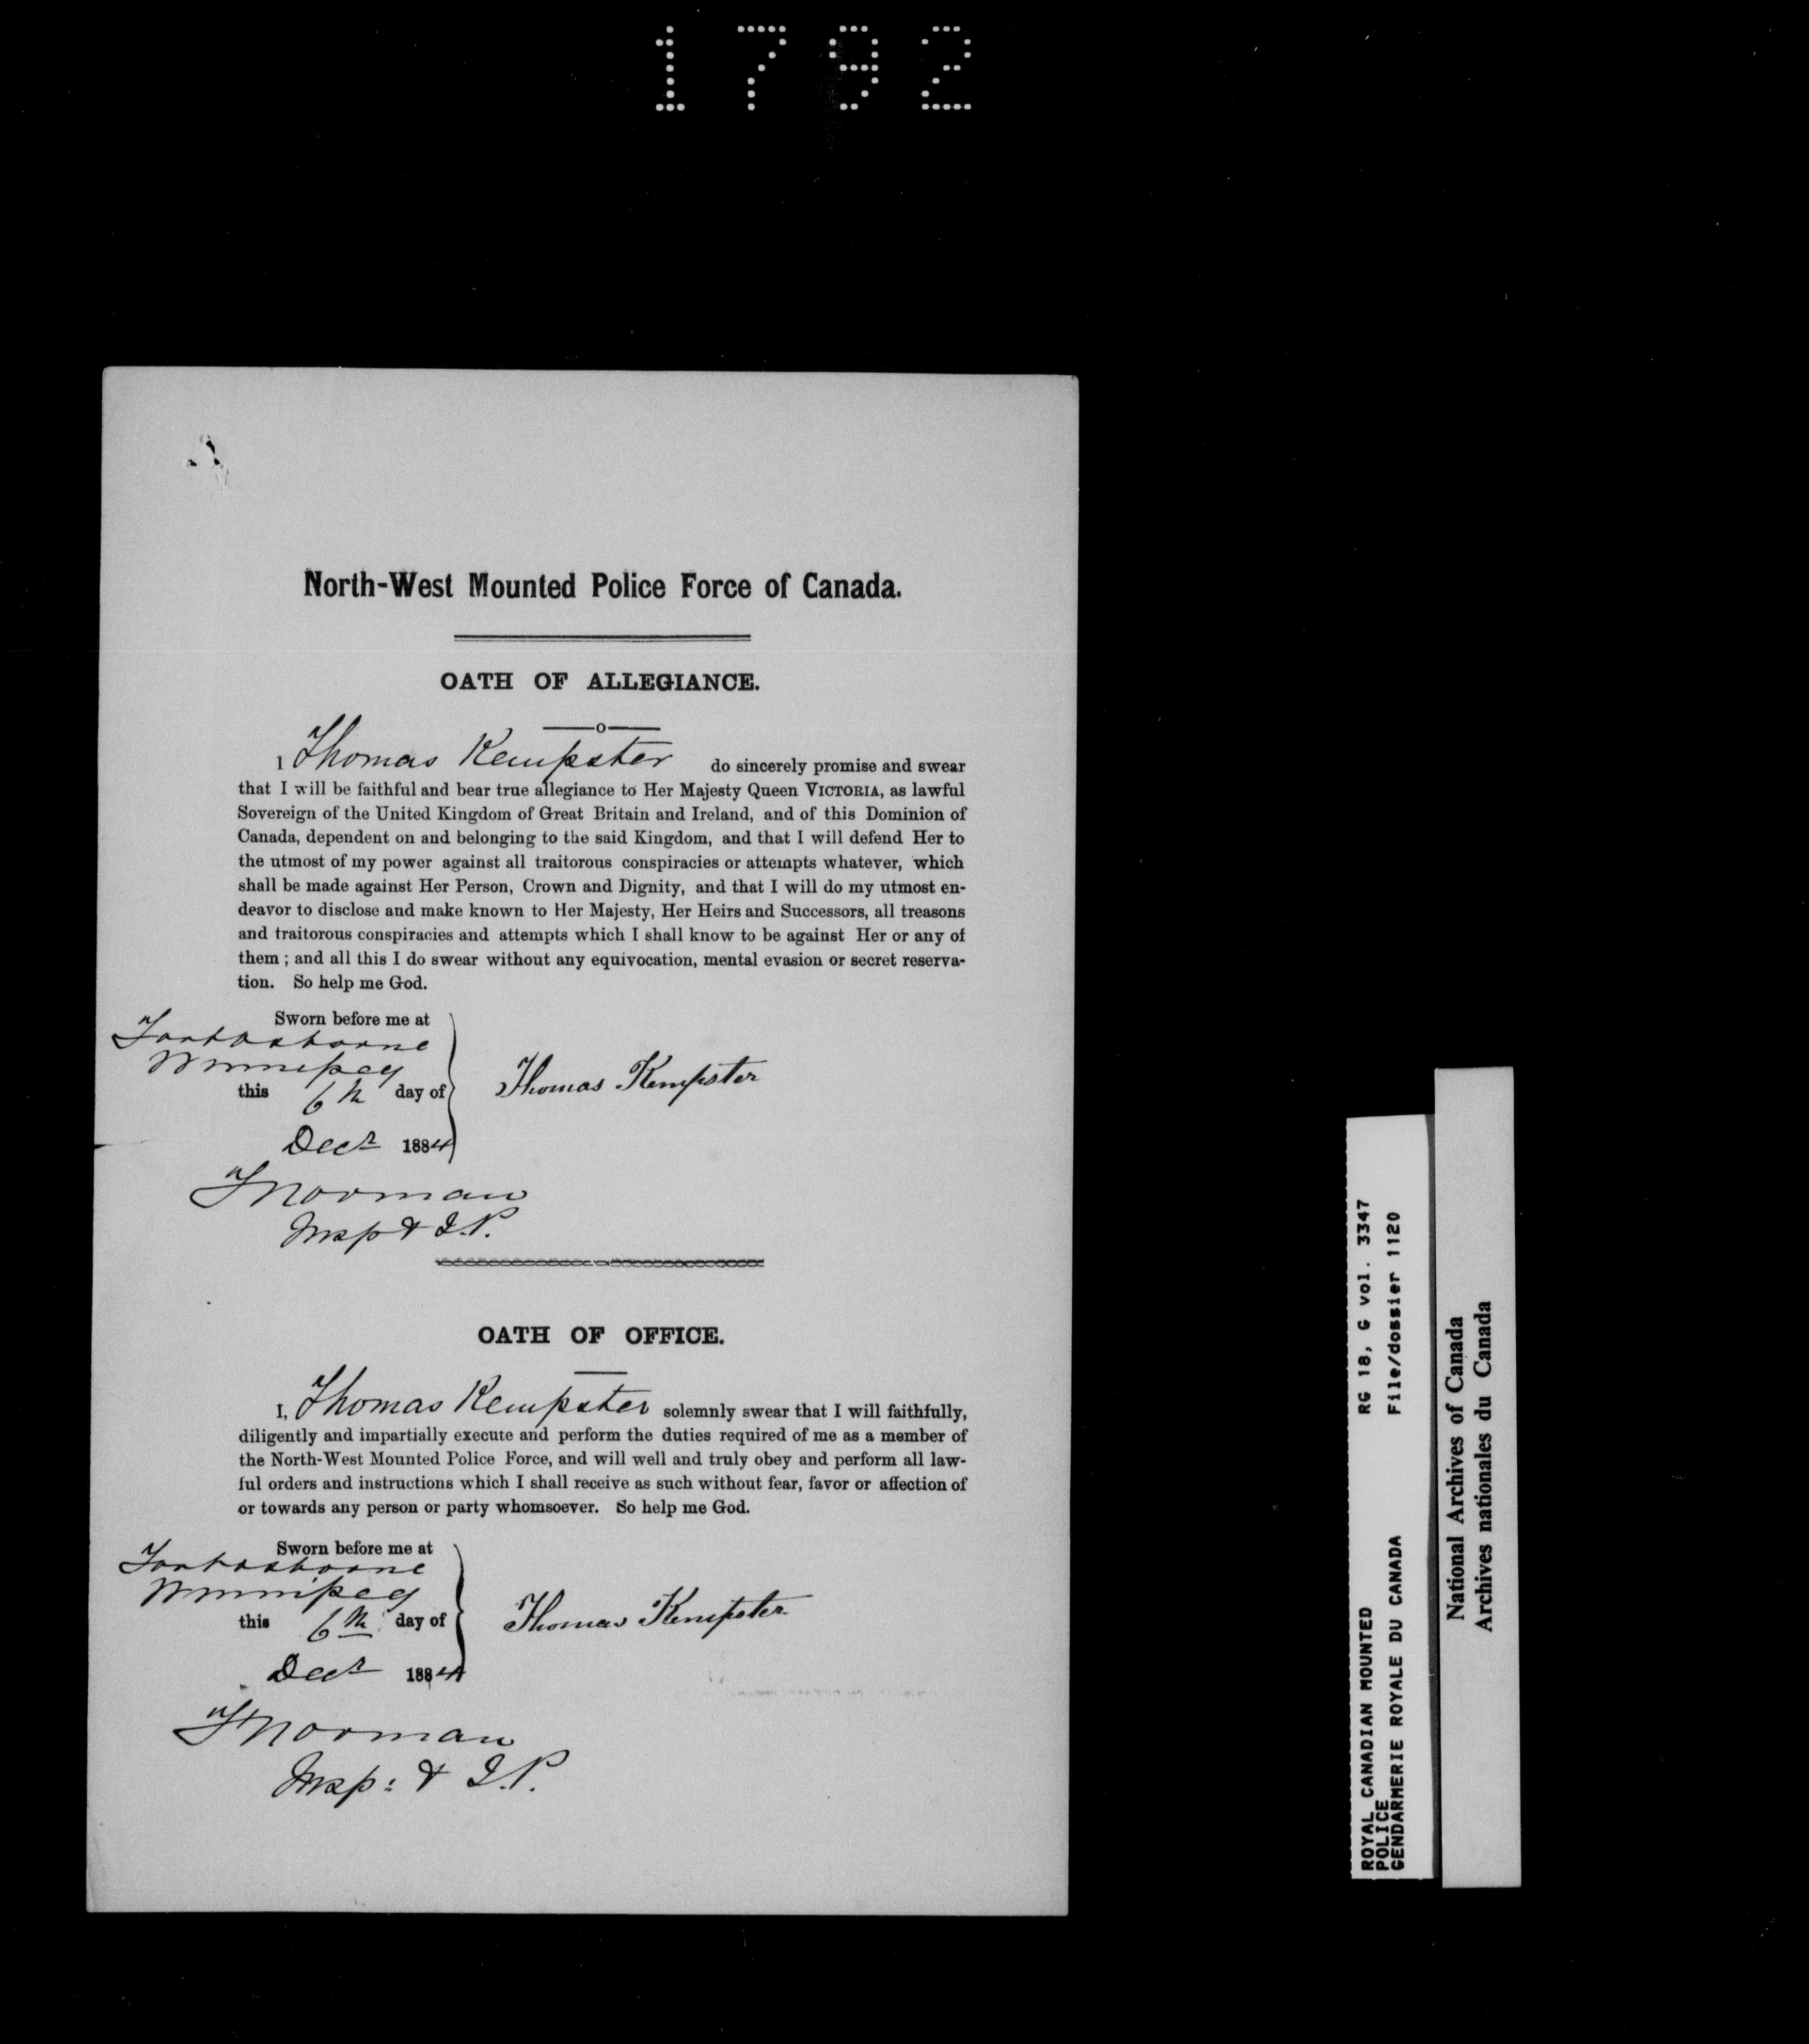 1792
North-West Mounted Police Force of Canada.
OATH OF ALLEGIANCE.
I Thomas Kempster do sincerely promise and swear
that I will be faithful and bear true allegiance to Her Majesty Queen VICTORIA, as lawful
Sovereign of the United Kingdom of Great Britain and Ireland, and of this Dominion of
Canada, dependent on and belonging to the said Kingdom, and that I will defend Her to
the utmost of my power against all traitorous conspiracies or attempts whatever, which
shall be made against Her Person, Crown and Dignity, and that I will do my utmost en-
deavor to disclose and make known to Her Majesty, Her Heirs and Successors, all treasons
and traitorous conspiracies and attempts which I shall know to be against Her or any of
them ; and all this I do swear without any equivocation, mental evasion or secret reserva-
tion. So help me God.
Sworn before me at
Fort Osborne
Winnipeg
this 6th day of
Decr 1884
Thomas Kempster
F Norman
Insp & J.P.
OATH OF OFFICE.
I, Thomas Kempster solemnly swear that I will faithfully,
diligently and impartially execute and perform the duties required of me as a member of
the North-West Mounted Police Force, and will well and truly obey and perform all law-
ful orders and instructions which I shall receive as such without fear, favor or affection of
or towards any person or party whomsoever. So help me God.
Sworn before me at
Fort Osborne
Winnipeg
this 6th day of
Decr 1884
Thomas Kempster
F Norman
Insp: & J.P.
ROYAL CANADIAN MOUNTED RG 18, G vol. 3347
POLICE
GENDARMERIE ROYALE DU CANADA File/dossier 1120
National Archives of Canada
Archives nationales du Canada